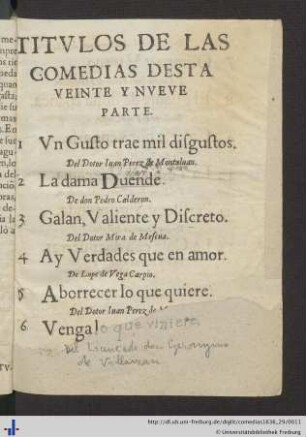 TITVLOS DE LAS
COMEDIAS DESTA
VEINTE Y NVEVE
PARTE.
1 Vn Gusto trae mil disgustos.
Del Dotor Iuan Perez de Montaluan.
2 La dama Duende.
De don Pedro Calderon.
3 Galan, Valiente y Discreto.
Del Dotor Mira de Mescua.
4 Ay Verdades que en amor.
De Lope de Vega Carpio.
5 Aborrecer lo que quiere.
Del Dotor Iuan Perez de
6 Venga lo que viniere
del don Geronymo
de Villaizan
http://dl.ub.uni-freiburg.de/diglit/comedias1636_29/0011
© Universitätsbibliothek Freiburg